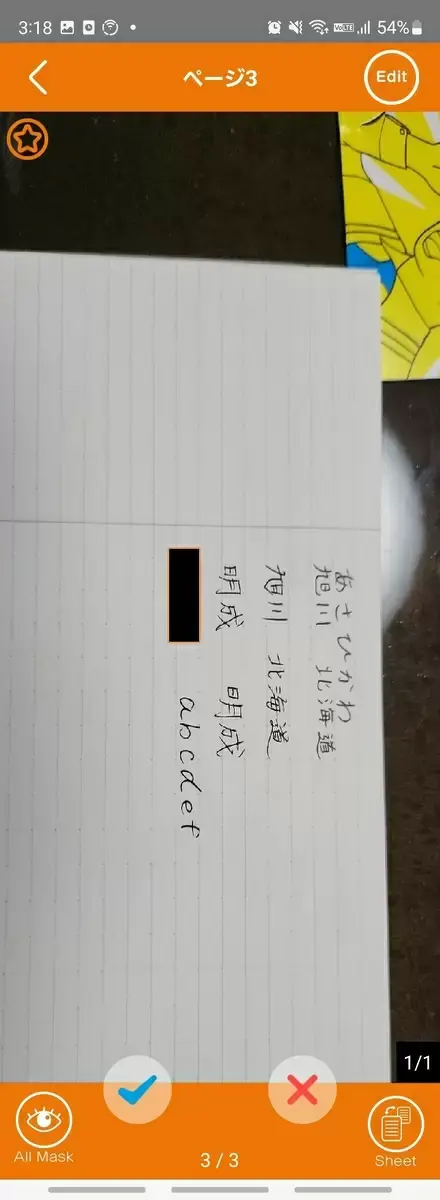 3:18
VoLTE
54%
ページ3
Edit
あさひかわ
旭川 北海道
旭川 北海道
明成 明成
abcdef
1/1
All Mask
3 / 3
Sheet